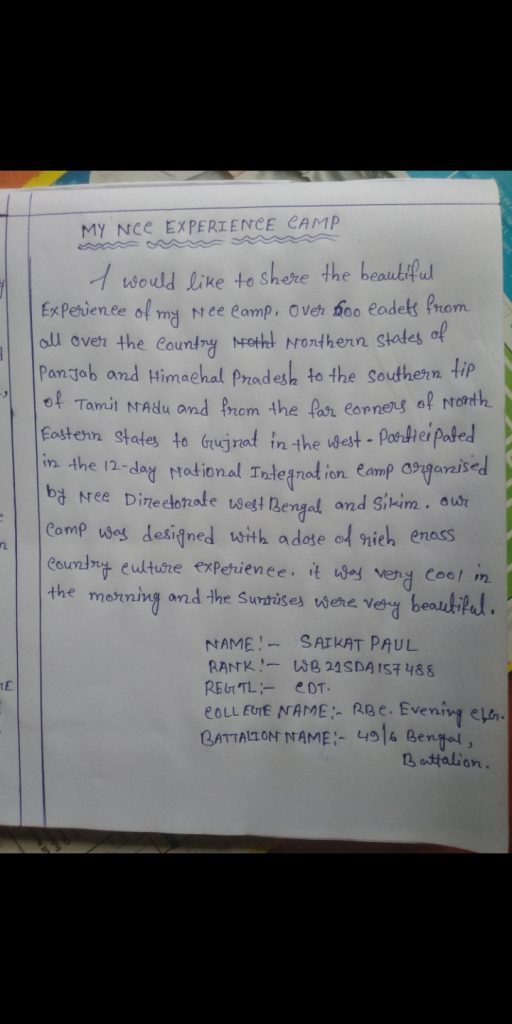 MY NCC EXPERIENCE CAMP
I would like to shere the beautiful
Experience of my Ncc camp. Over 600 cadets from
all over the country Notht Northern states of
Panjab and Himachal Pradesh to the southern tip
of Tamil NAdu and from the far corners of North
Eastern states to Gujrat in the west - Participated
in the 12-day National Integration camp organised
by Ncc Directorate West Bengal and Sikim. our
camp was designed with a dose of rich cross
country culture experience. it was very cool in
the morning and the sunrises were very beautiful.
NAME:- SAIKAT PAUL
RANK:- WB21SDA157488
REGTL:- CDT.
COLLEGE NAME:- RBC. Evening
BATTALION NAME:- 49/6 Bengal,
Battalion.